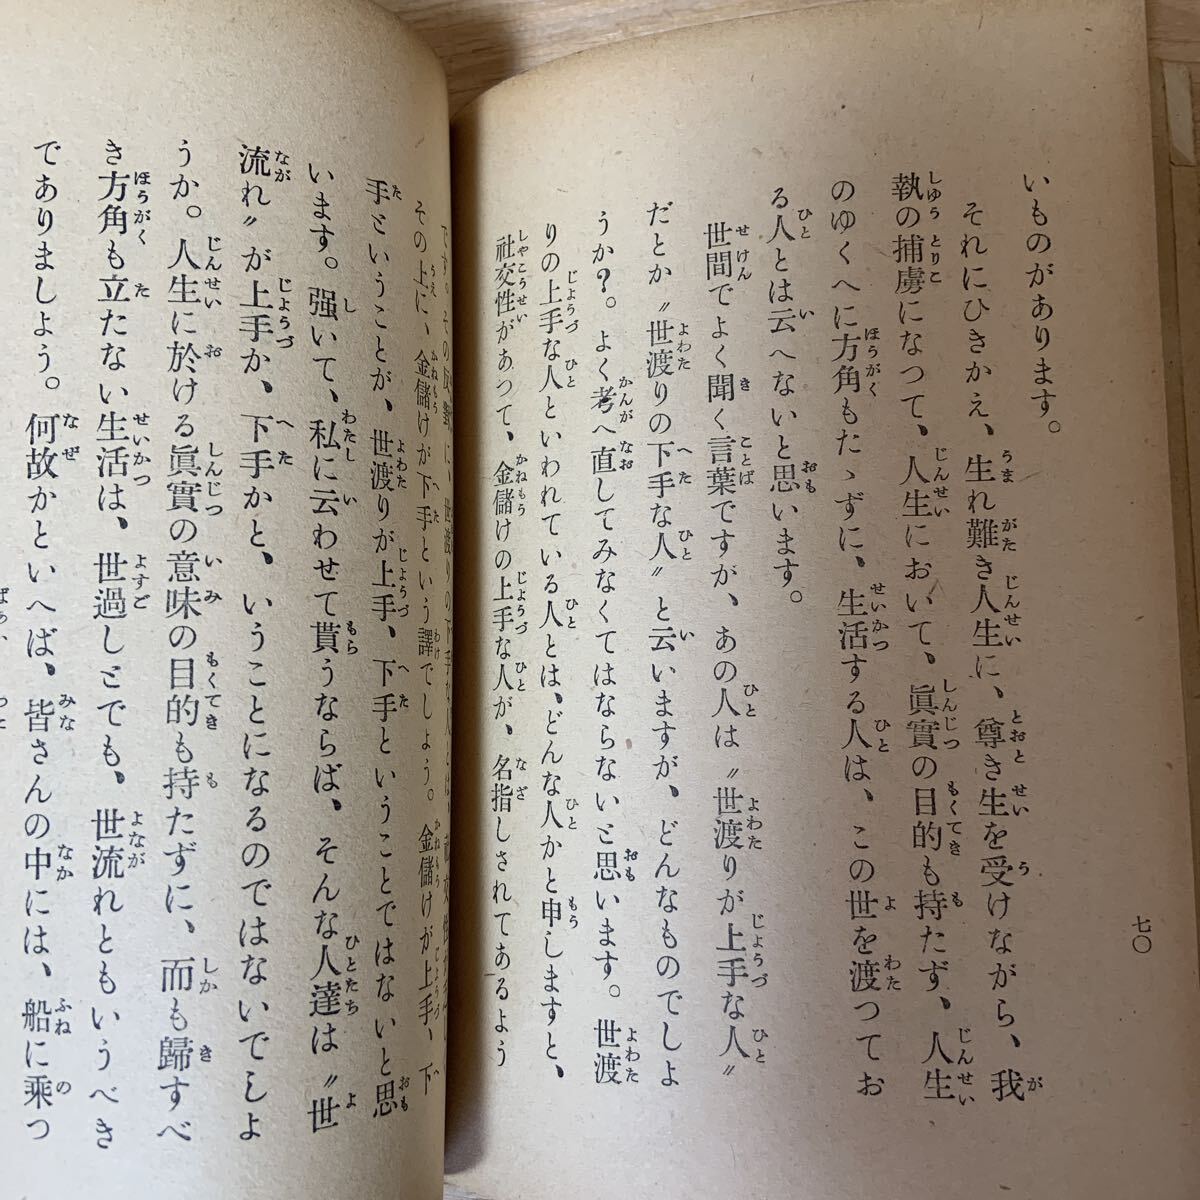 七〇
いものがあります。
それにひきかえ、生れ難き人生に、尊き生を受けながら、我
執の捕虜になつて、人生において、眞實の目的も持たず、人生
のゆくへに方角もたゝずに、生活する人は、この世を渡つてお
る人とは云へないと思います。
世間でよく聞く言葉ですが、あの人は〝世渡りが上手な人〟
だとか〝世渡りの下手な人〟と云いますが、どんなものでしよ
うか？。よく考へ直してみなくてはならないと思います。世渡
りの上手な人といわれている人とは、どんな人かと申しますと、
社交性があつて、金儲けの上手な人が、名指しされてあるよう
です。その反對に、世渡りの下手な人とは、社交性が
その上に、金儲けが下手という譯でしよう。金儲けが上手、下
手ということが、世渡りが上手、下手ということではないと思
います。强いて、私に云わせて貰うならば、そんな人達は〝世
流れ〟が上手か、下手かと、いうことになるのではないでしよ
うか。人生に於ける眞實の意味の目的も持たずに、而も歸すべ
き方角も立たない生活は、世過しとでも、世流れともいうべき
でありましよう。何故かといへば、皆さんの中には、船に乘つ